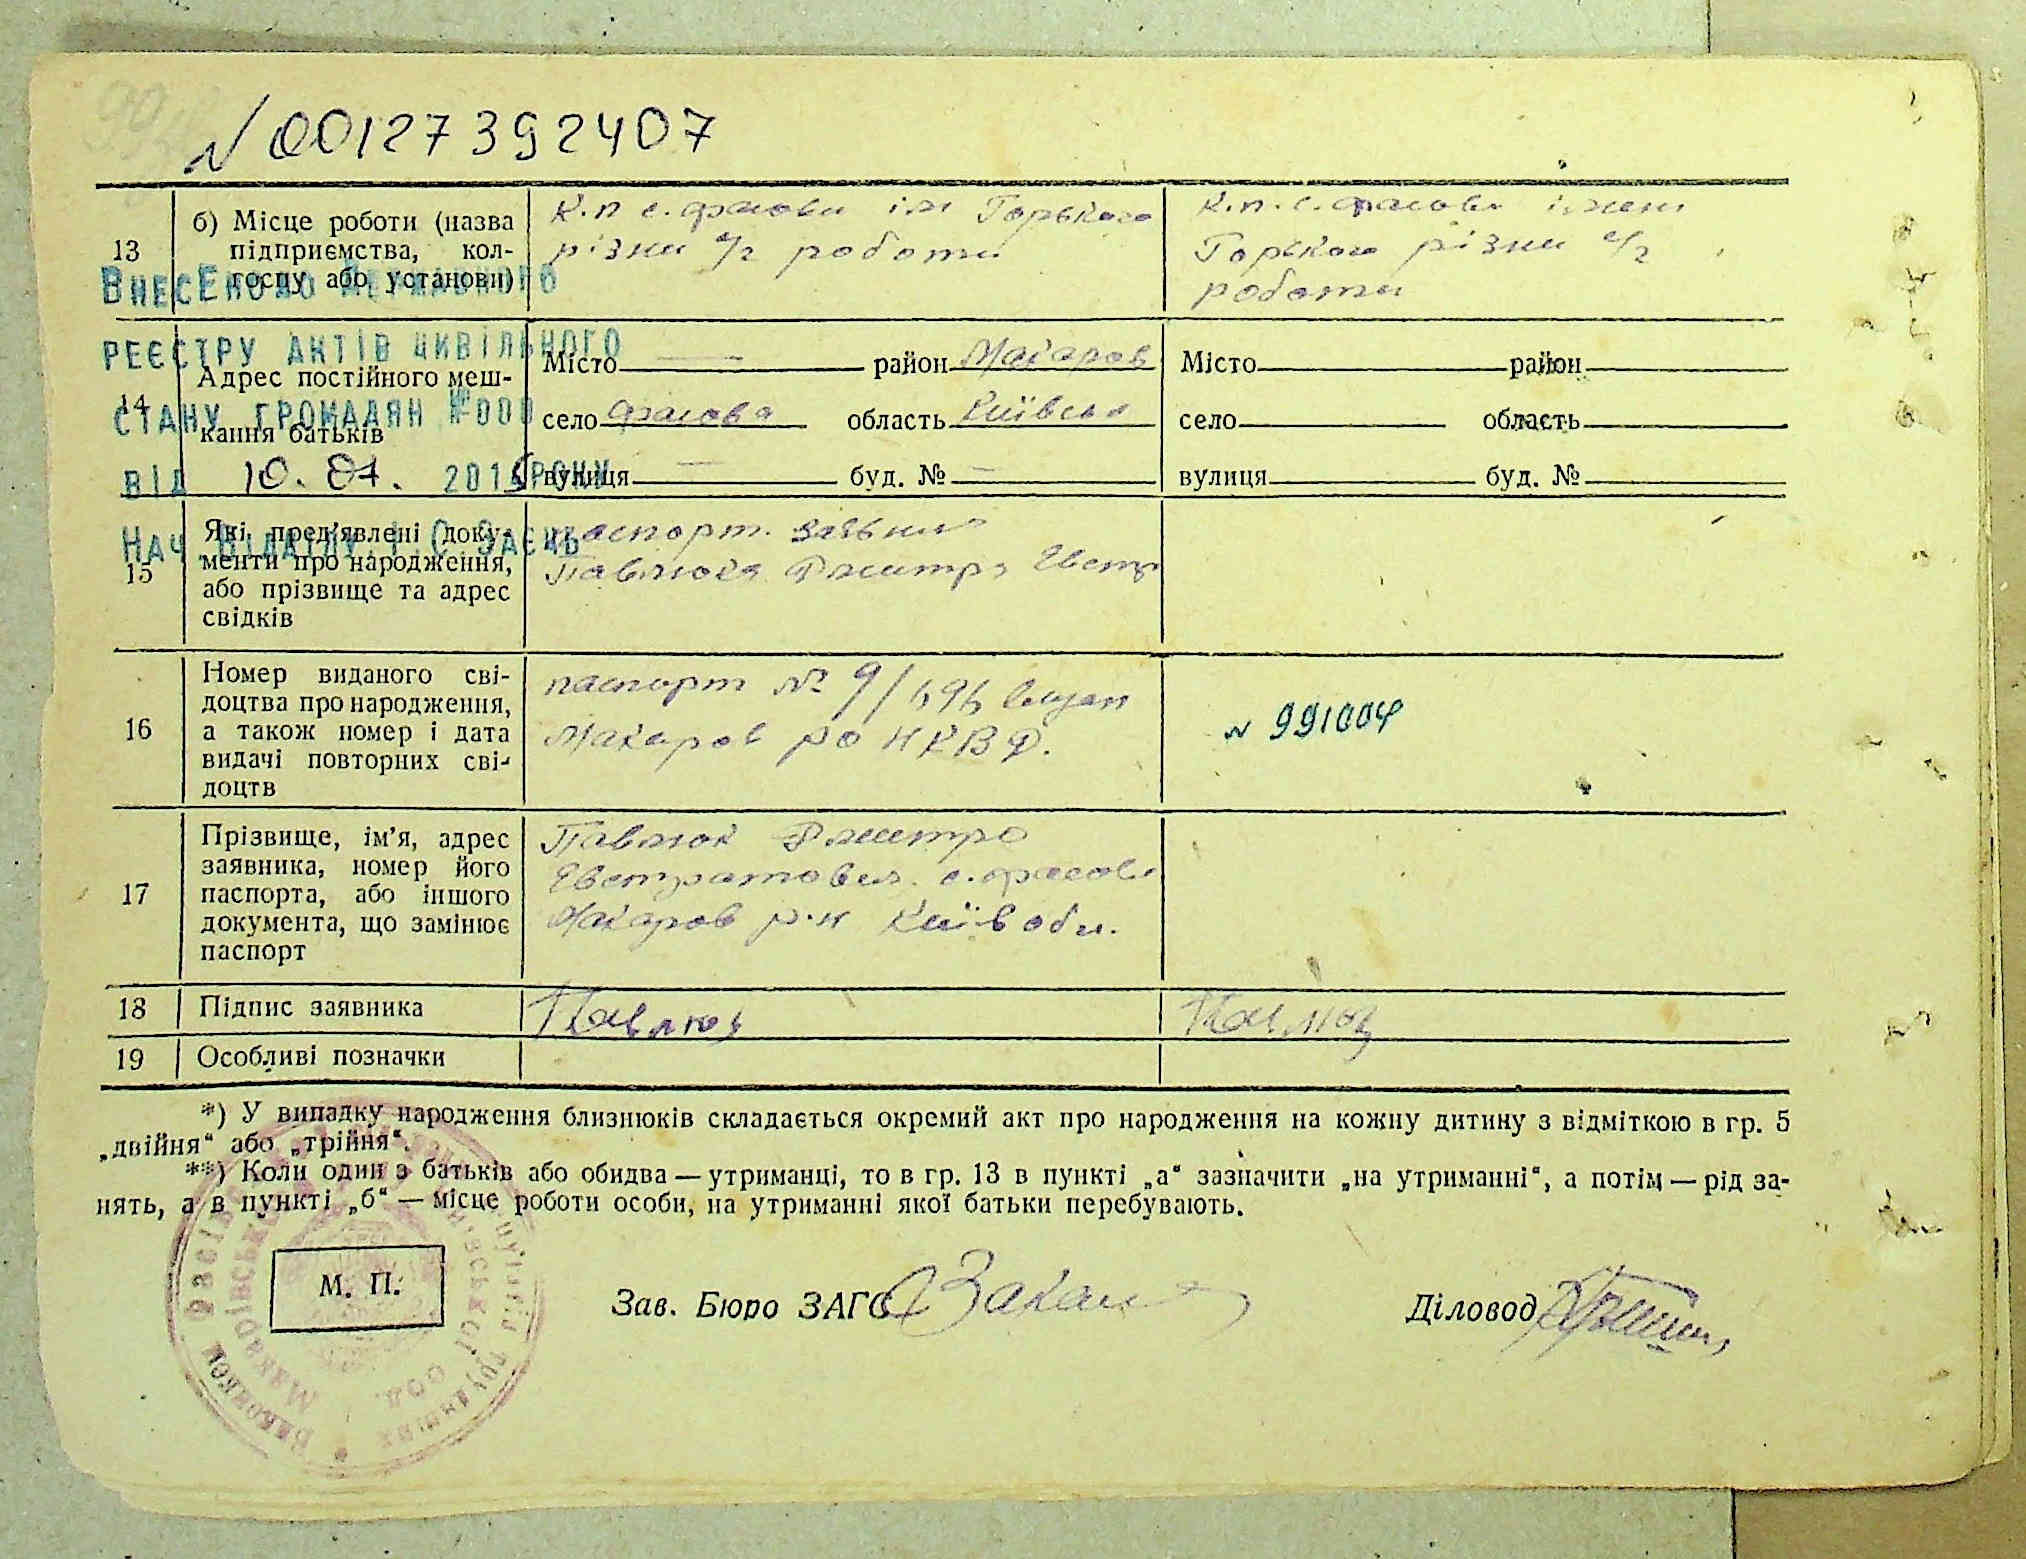 N 00127392407
13
б) Місце роботи (назва
підприємства, кол-
госпу або установи)
к.п с. Фасова ім Горького
різни с/г роботи
к.п. с. Фасова імені
Горького різни с/г
роботи
Внесено до Державного
реєстру актів цивільного
стану громадян №000
від 10. 01. 2015 року
Нач. відділу І.С. Заєць
14
Адрес постійного меш-
кання батьків
Місто — район Макаров
село Фасова область Київська
вулиця — буд. № —
Місто район
село область
вулиця буд. №
15
Які пред'явлені доку-
менти про народження,
або прізвище та адрес
свідків
паспорт. заявника
Павлюка Дмитра Євстр
16
Номер виданого сві-
доцтва про народження,
а також номер і дата
видачі повторних сві-
доцтв
паспорт № 9/696 видан
Макаров РО НКВД.
N 991004
17
Прізвище, ім'я, адрес
заявника, номер його
паспорта, або іншого
документа, що замінює
паспорт
Павлюк Дмитро
Євстратович. с. Фасова
Макаров р-н Київ обл.
18
Підпис заявника
Павлюк
Павлюк
19
Особливі позначки
*) У випадку народження близнюків складається окремий акт про народження на кожну дитину з відміткою в гр. 5
„двійня“ або „трійня“.
**) Коли один з батьків або обидва — утриманці, то в гр. 13 в пункті „а“ зазначити „на утриманні“, а потім — рід за-
нять, а в пункті „б“ — місце роботи особи, на утриманні якої батьки перебувають.
М. П.
Зав. Бюро ЗАГС
Діловод